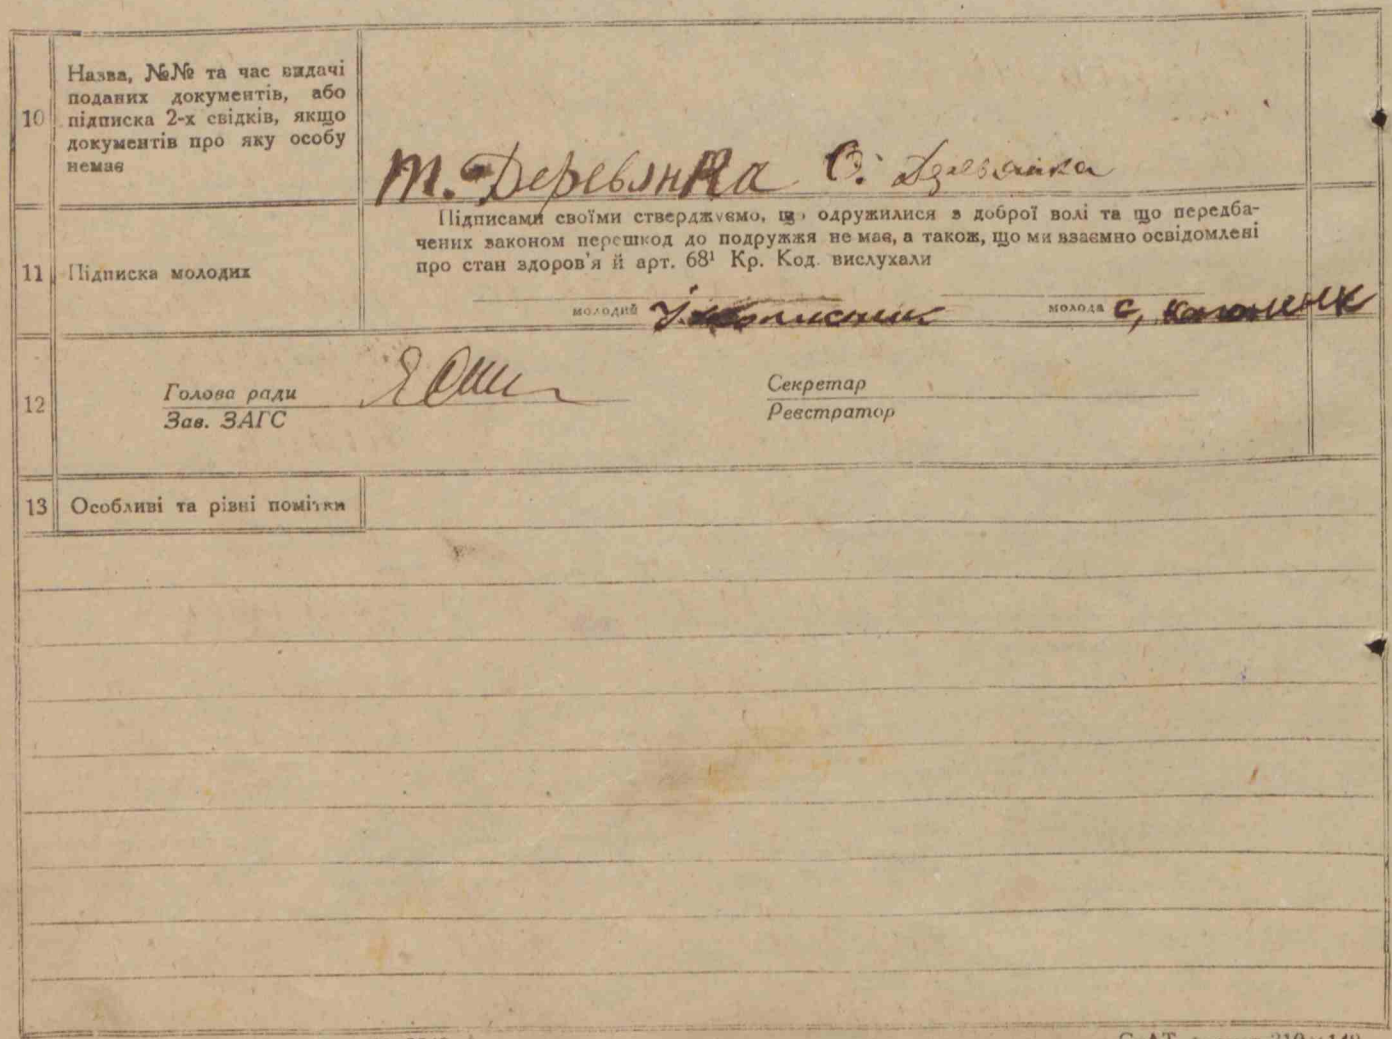 10 Назва, №№ та час видачі
поданих документів, або
підписка 2-х свідків, якщо
документів про яку особу
немає
Т. Деревянка О.
11 Підписка молодих
Підписами своїми стверджуємо, що одружилися з доброї волі та що передба-
чених законом перешкод до подружжя немає, а також, що ми взаємно освідомлені
про стан здоров'я й арт. 68¹ Кр. Код. вислухали
молодий молода С,
12 Голова ради Секретар
Зав. ЗАГС Реєстратор
13 Особливі та різні помітки